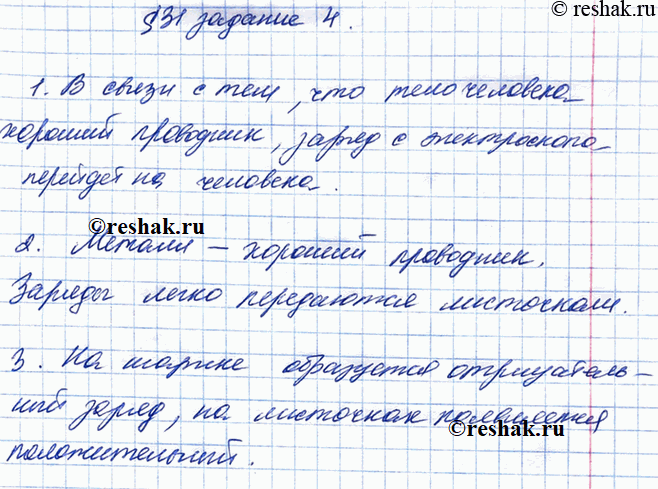 ©reshak.ru
§31 задание 4.
1. В связи с тем, что тело человека
хороший проводник, заряд с электроскопа
перейдет на человека.
©reshak.ru
2. Металл – хороший проводник.
Заряды легко передаются листочкам.
3. На шарике образуется отрицатель-
ный заряд, на листочках появляется
©reshak.ru
положительный.